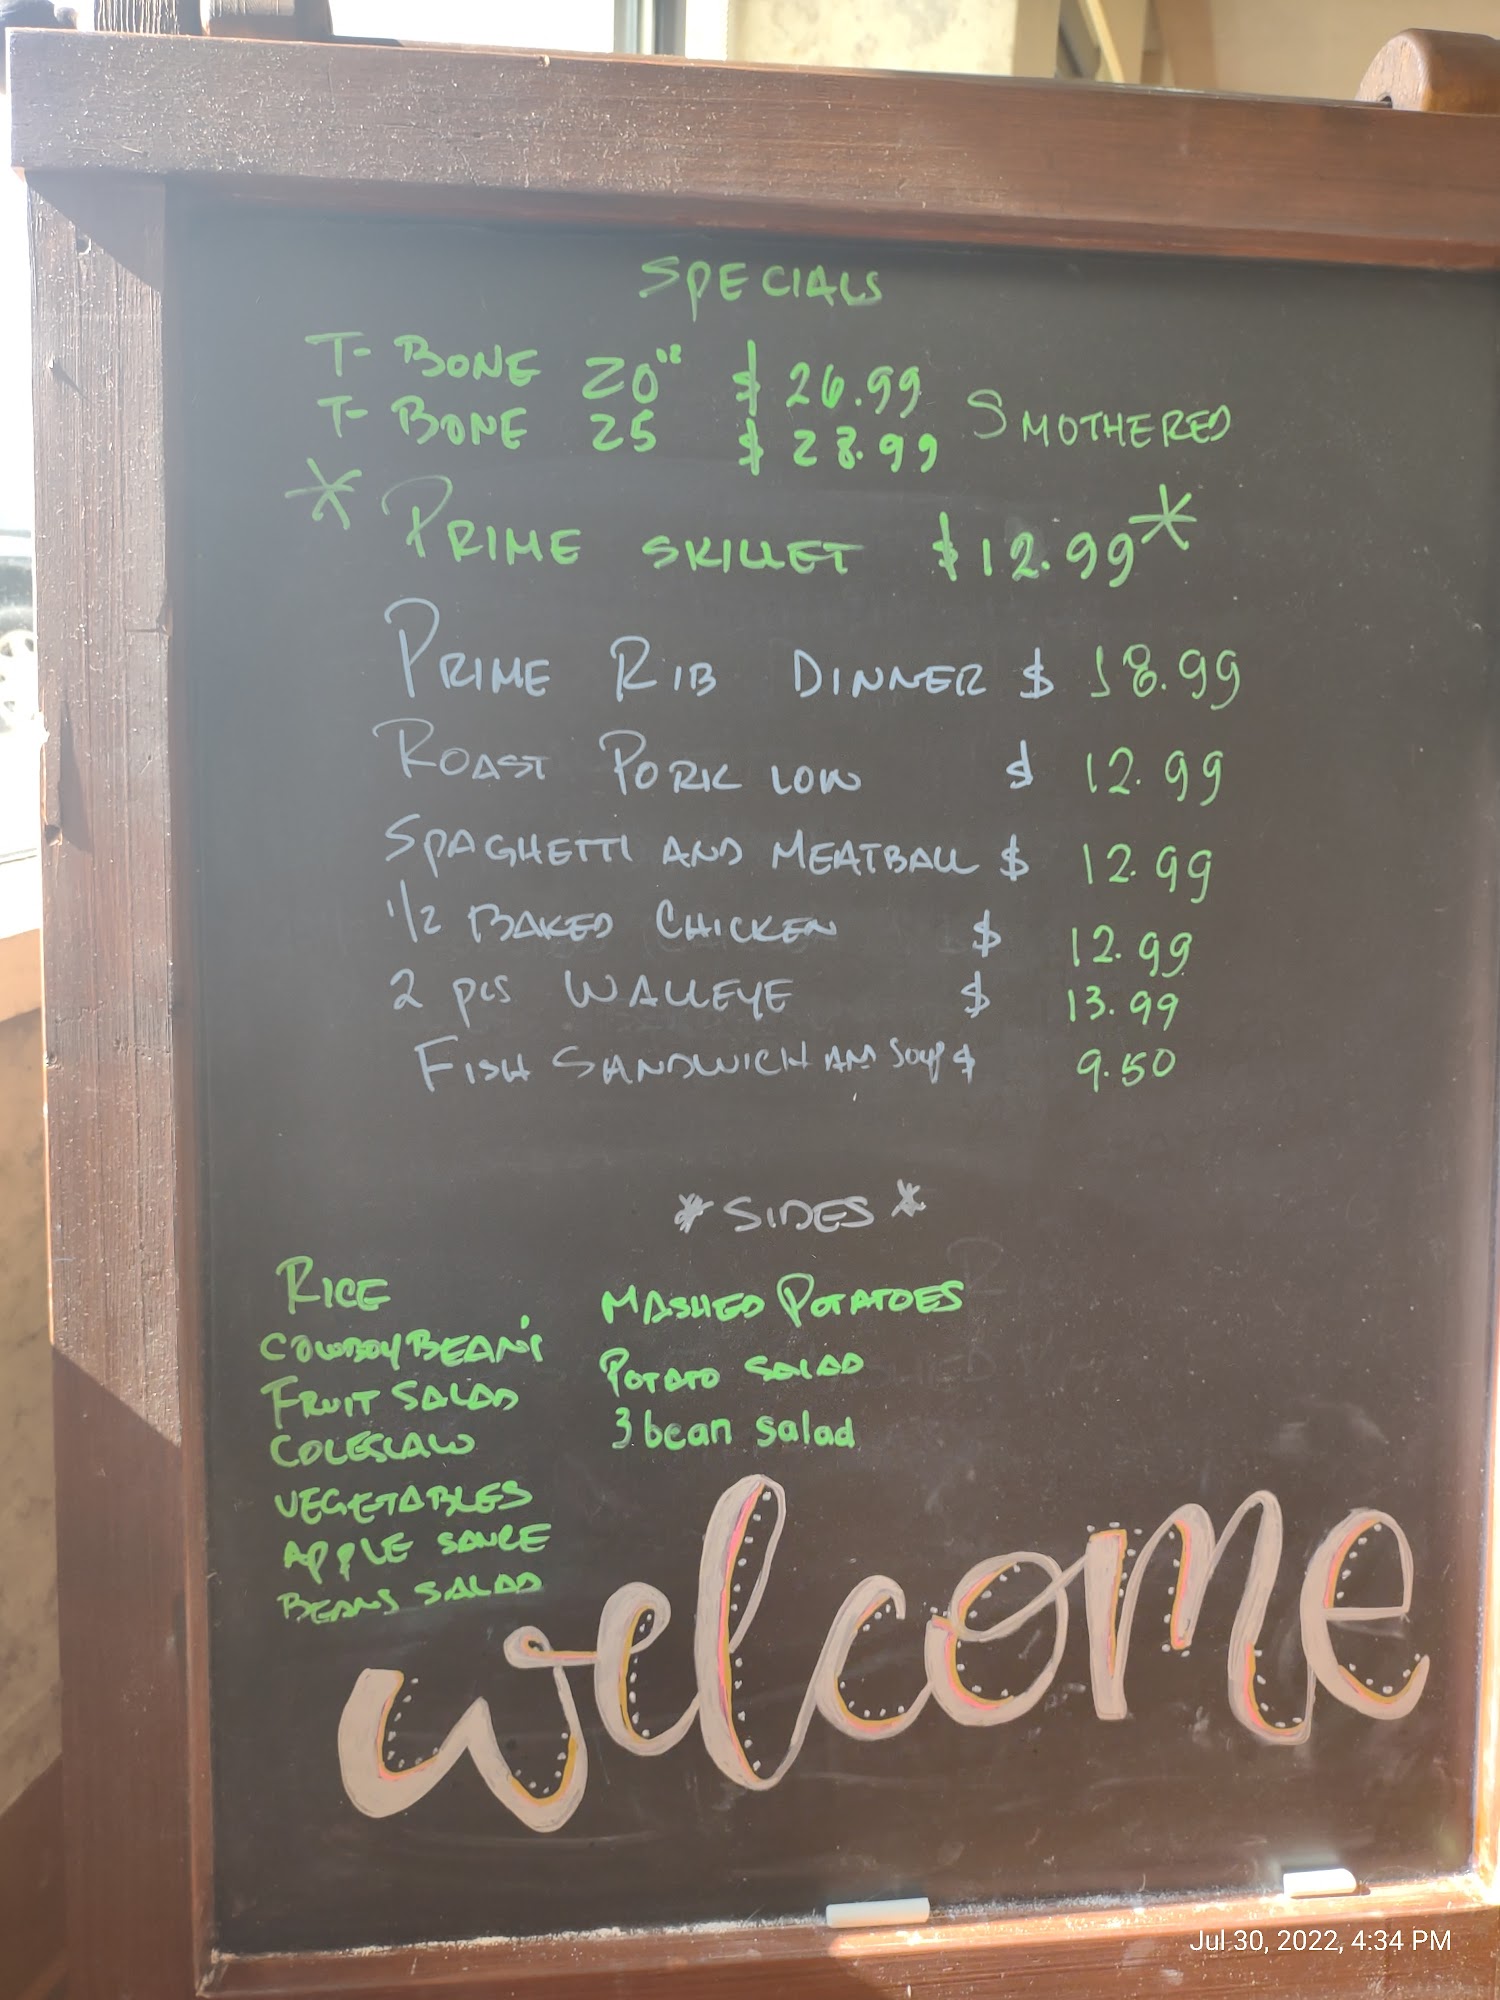 SPECIALS
T-BONE 20" $26.99
T-BONE 25 $28.99 SMOTHERED
* PRIME SKILLET $12.99 *
PRIME RIB DINNER $ 18.99
ROAST PORK LOW $ 12.99
SPAGHETTI AND MEATBALL $ 12.99
1/2 BAKED CHICKEN $ 12.99
2 pcs WALLEYE $ 13.99
FISH SANDWICH AM Soup $ 9.50
*SIDES*
RICE MASHED POTATOES
COWBOY BEAN'S POTATO SALAD
FRUIT SALAD 3 bean salad
COLESLAW
VEGETABLES
APPLE SAUCE
BEANS SALAD
welcome
Jul 30, 2022, 4:34 PM